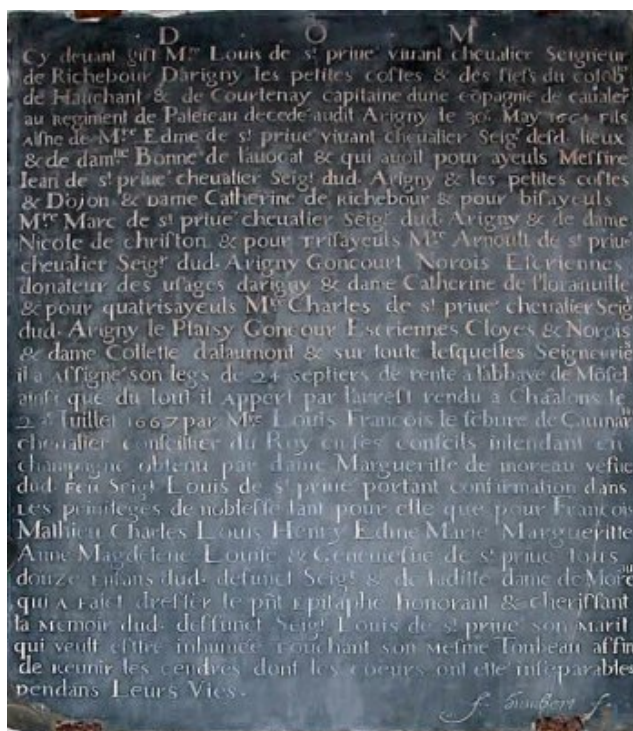 D O M
Cy deuant gist M.re Louis de st priue viuant cheualier Seigneur
de Richebour Darigny les petites costes & des fiefs du
de Hauchant & de Courtenay capitaine dune copagnie de caualer
au Regiment de Paleieau decede audit Arigny le 30. May 1661 fils
Aisne de M.re Edme de st priue viuant cheualier Seigr desd. lieux
& de damlle Bonne de lauocat & qui auoit pour ayeuls Messire
Iean de st priue cheualier Seigr dud. Arigny & les petites costes
& Dojon & Dame Catherine de Richebour & pour bisayeuls
M.re Marc de st priue cheualier Seigr dud. Arigny & de dame
Nicole de christon & pour Trisayeuls M.re Arnoult de st priue
cheualier Seigr dud. Arigny Goncourt Norois Escriennes
donateur des usages darigny & dame Catherine de
& pour quatrisayeuls M.re Charles de st priue cheualier Seig
dud. Arigny le Plaisy Goncour Escriennes Cloyes & Norois
& dame Collette dalaumont & sur toute lesquelles Seigneurie
il a Assigné son legs de 24 septiers de rente a labbaye de
ainsi que du tout il Appert par larrest rendu a Chaalons le
Iuillet 1667 par M.re Louis Francois le febure de Caumar
cheualier conseillier du Roy en ses conseils intendant en
champagne obtenu par dame Margueritte de moreau vefue
dud. Feu Seigr Louis de st priue portant confirmation dans
Les priuileges de noblesse tant pour elle que pour Francois
Mathieu Charles Louis Henry Edme Marie Margueritte
Anne Magdelene Louise & Geneuiefue de st priue tous
douze Enfans dud. defunct Seigr & de laditte dame de Moreau
qui A Faict dresser le pnt Epitaphe honorant & cherissant
la Memoir dud. deffunct Seigr Louis de st priue son Marit
qui veult estre inhumée Touchant son Mesme Tombeau affin
de Reunir les cendres dont les coeurs ont esté inseparables
pendans Leurs Vies.